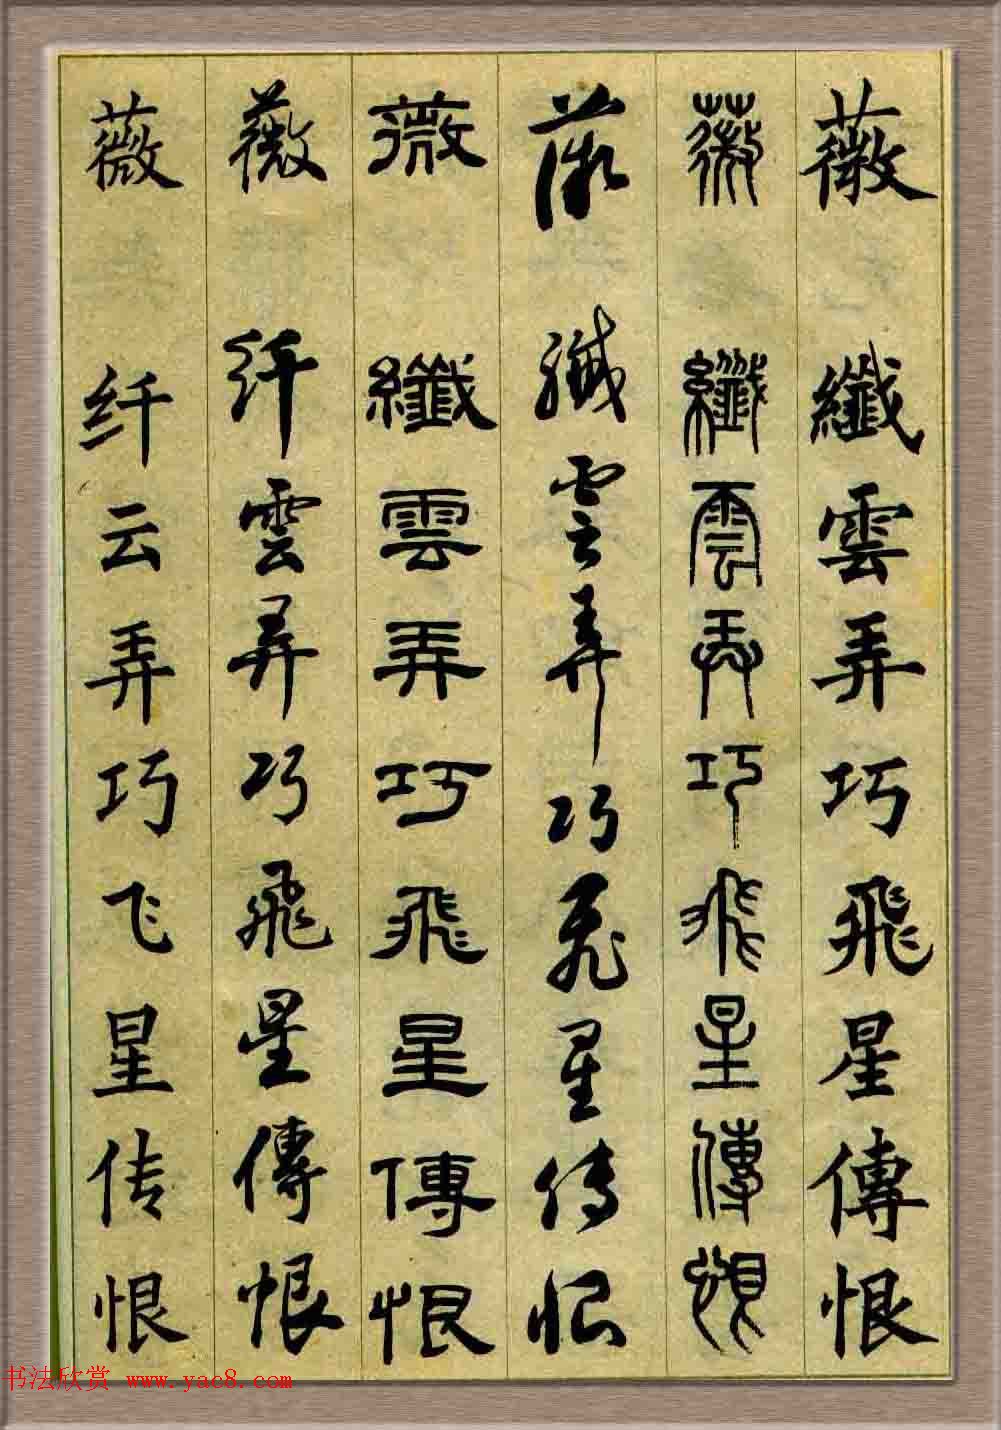 薇 纖雲弄巧飛星傳恨
薇 纖雲弄巧飛星傳恨
薇 纖雲弄巧飛星传恨
薇 纖雲弄巧飛星傳恨
薇 纤雲弄巧飛星傳恨
薇 纤云弄巧飞星传恨
书法欣赏 www.yac8.com